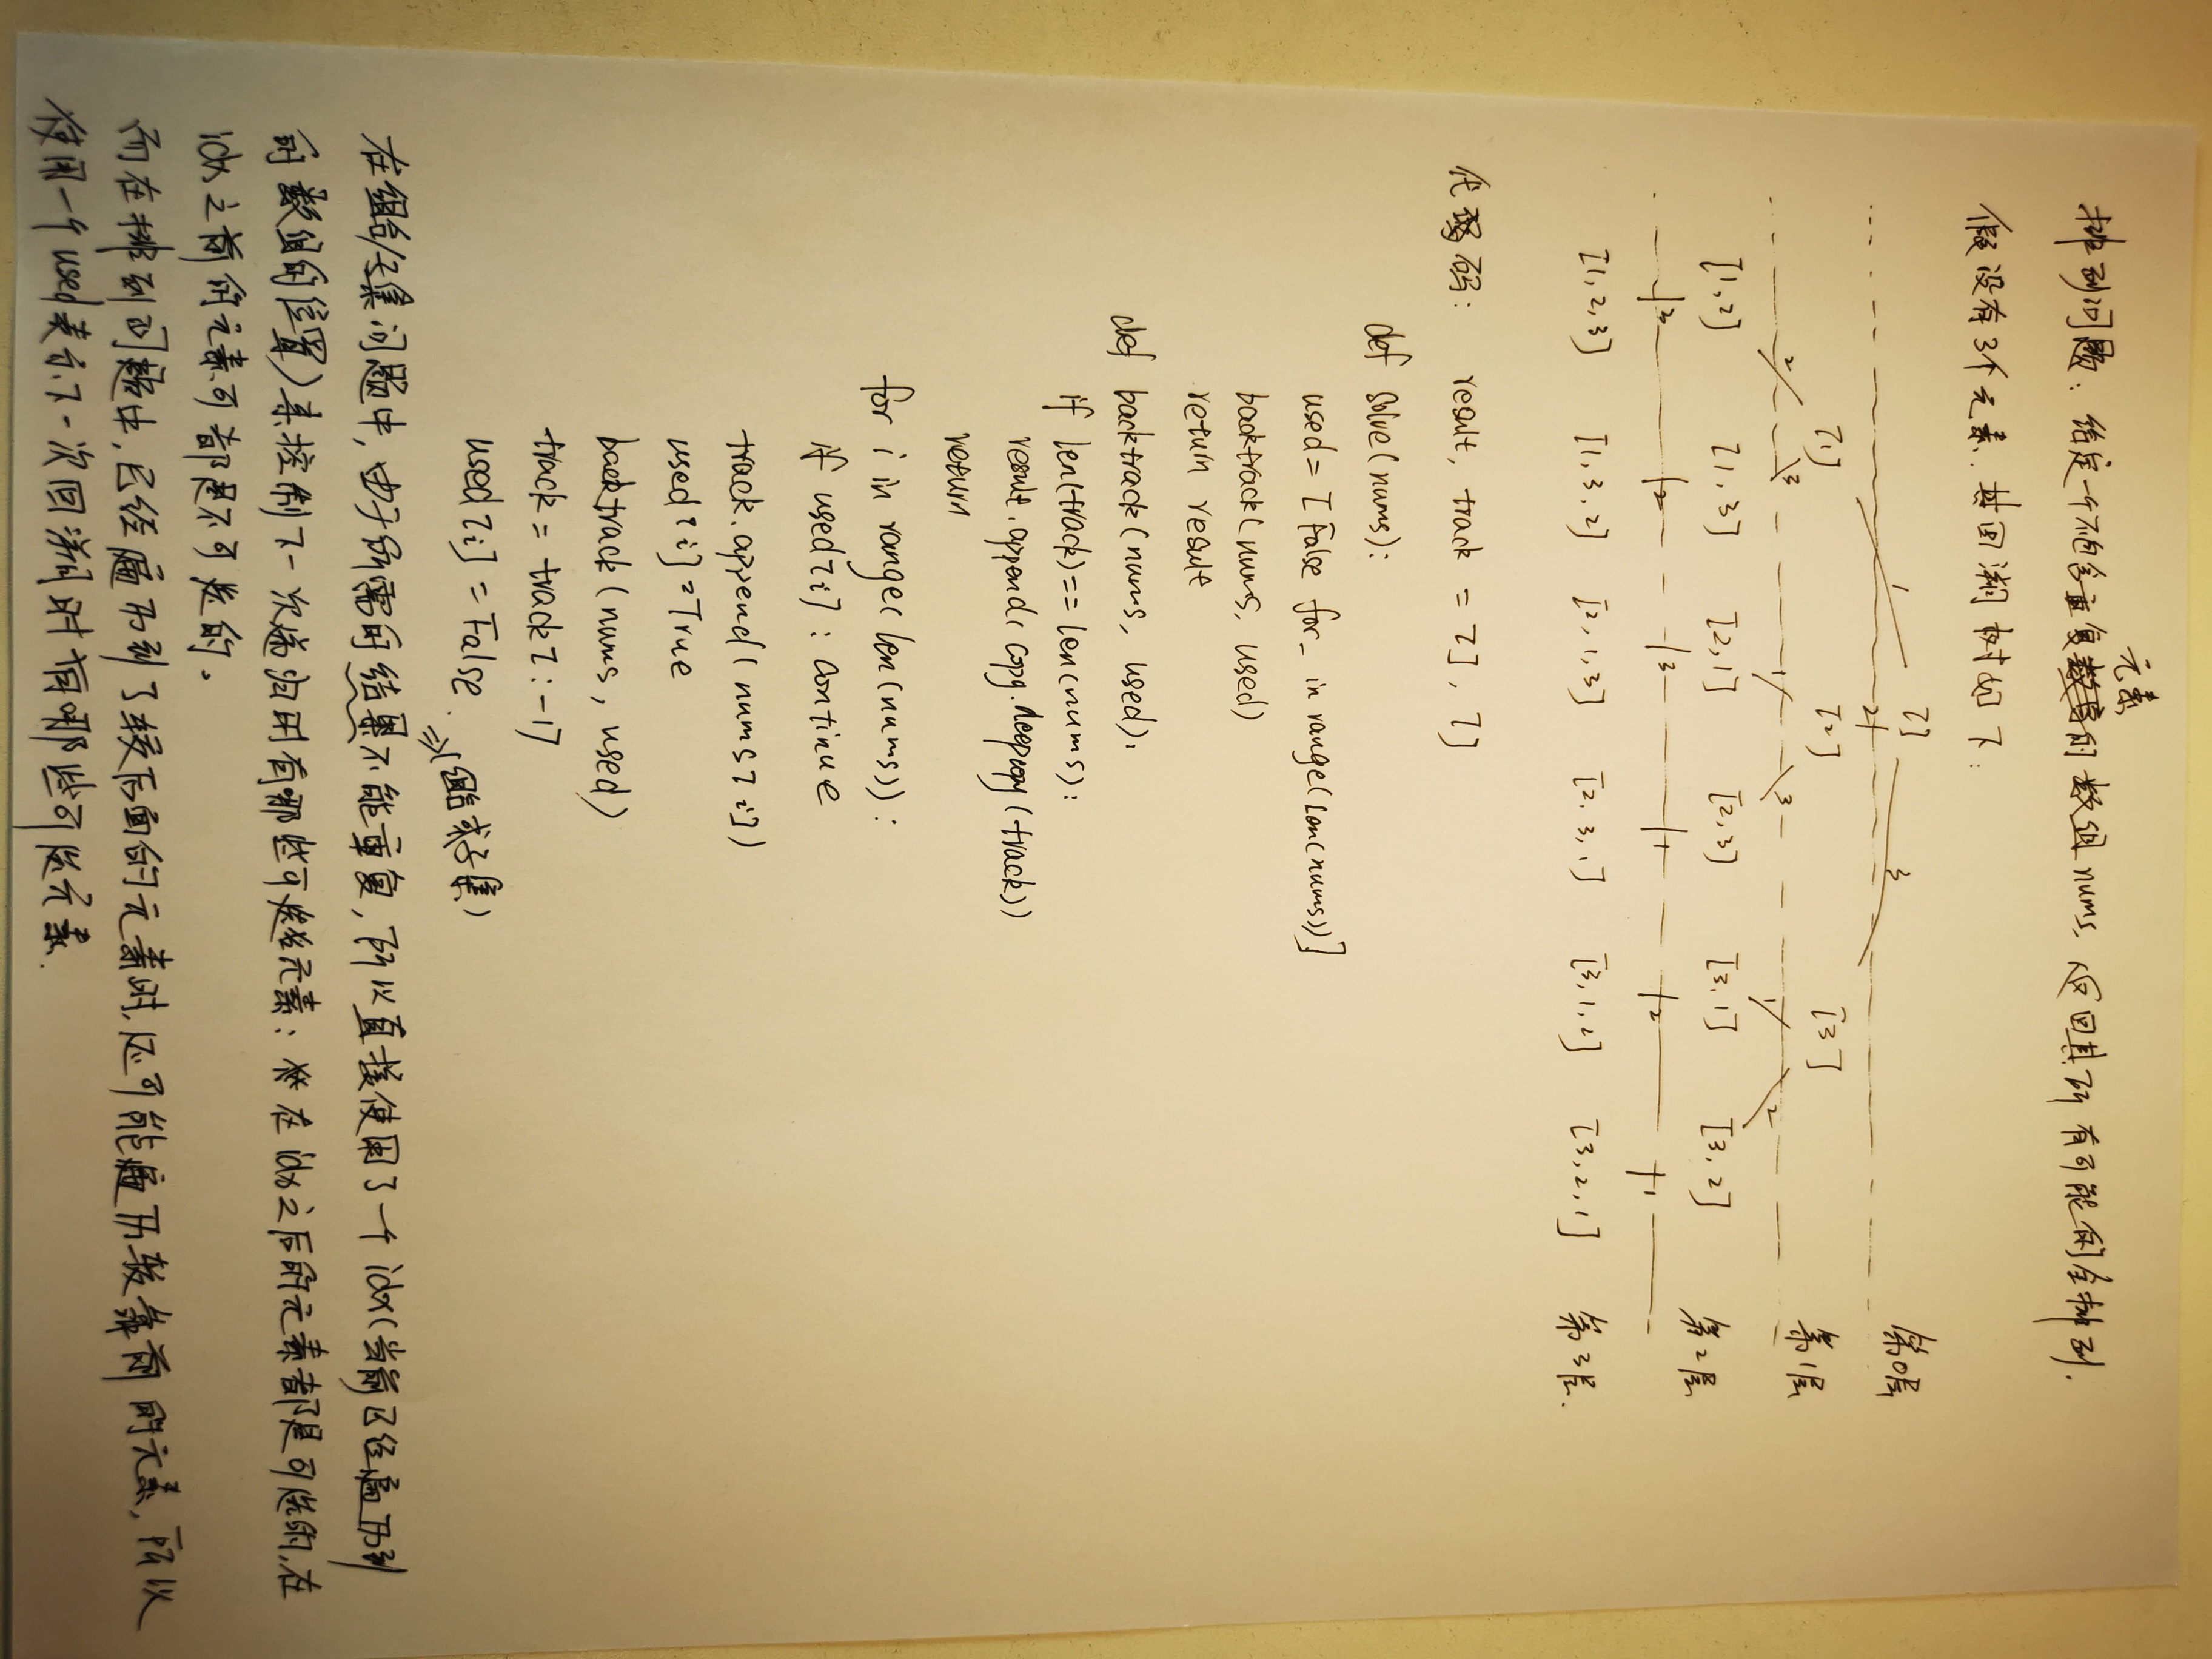 元素
排列问题：给定一个不包含重复的数组nums，返回其所有可能的全排列.
假设有3个元素.其回溯树如下：
[] 第0层
1 2 3
[1] [2] [3] 第1层
2 3 1 3 1 2
[1,2] [1,3] [2,1] [2,3] [3,1] [3,2] 第2层
3 2 3 1 2 1
[1,2,3] [1,3,2] [2,1,3] [2,3,1] [3,1,2] [3,2,1] 第3层.
代码： result, track = [], []
def solve(nums):
used = [False for _ in range(len(nums))]
backtrack(nums, used)
return result
def backtrack(nums, used):
if len(track)==len(nums):
result.append(copy.deepcopy(track))
return
for i in range(len(nums)):
if used[i]: continue
track.append(nums[i])
used[i]=True
backtrack(nums, used)
track = track[:-1]
used[i] = False.
=>(组合或子集)
在组合/子集问题中,由于所需的结果不能重复,所以直接使用了一个idx(当前已经遍历到
的数组的位置)来控制下一次递归时有哪些可选元素: 在idx之后的元素都是可选的,在
idx之前的元素可都是不可选的。
而在排列问题中,已经遍历到了较后面的元素时,还可能遍历较靠前的元素,所以
使用一个used表示下一次回溯时有哪些可选元素.